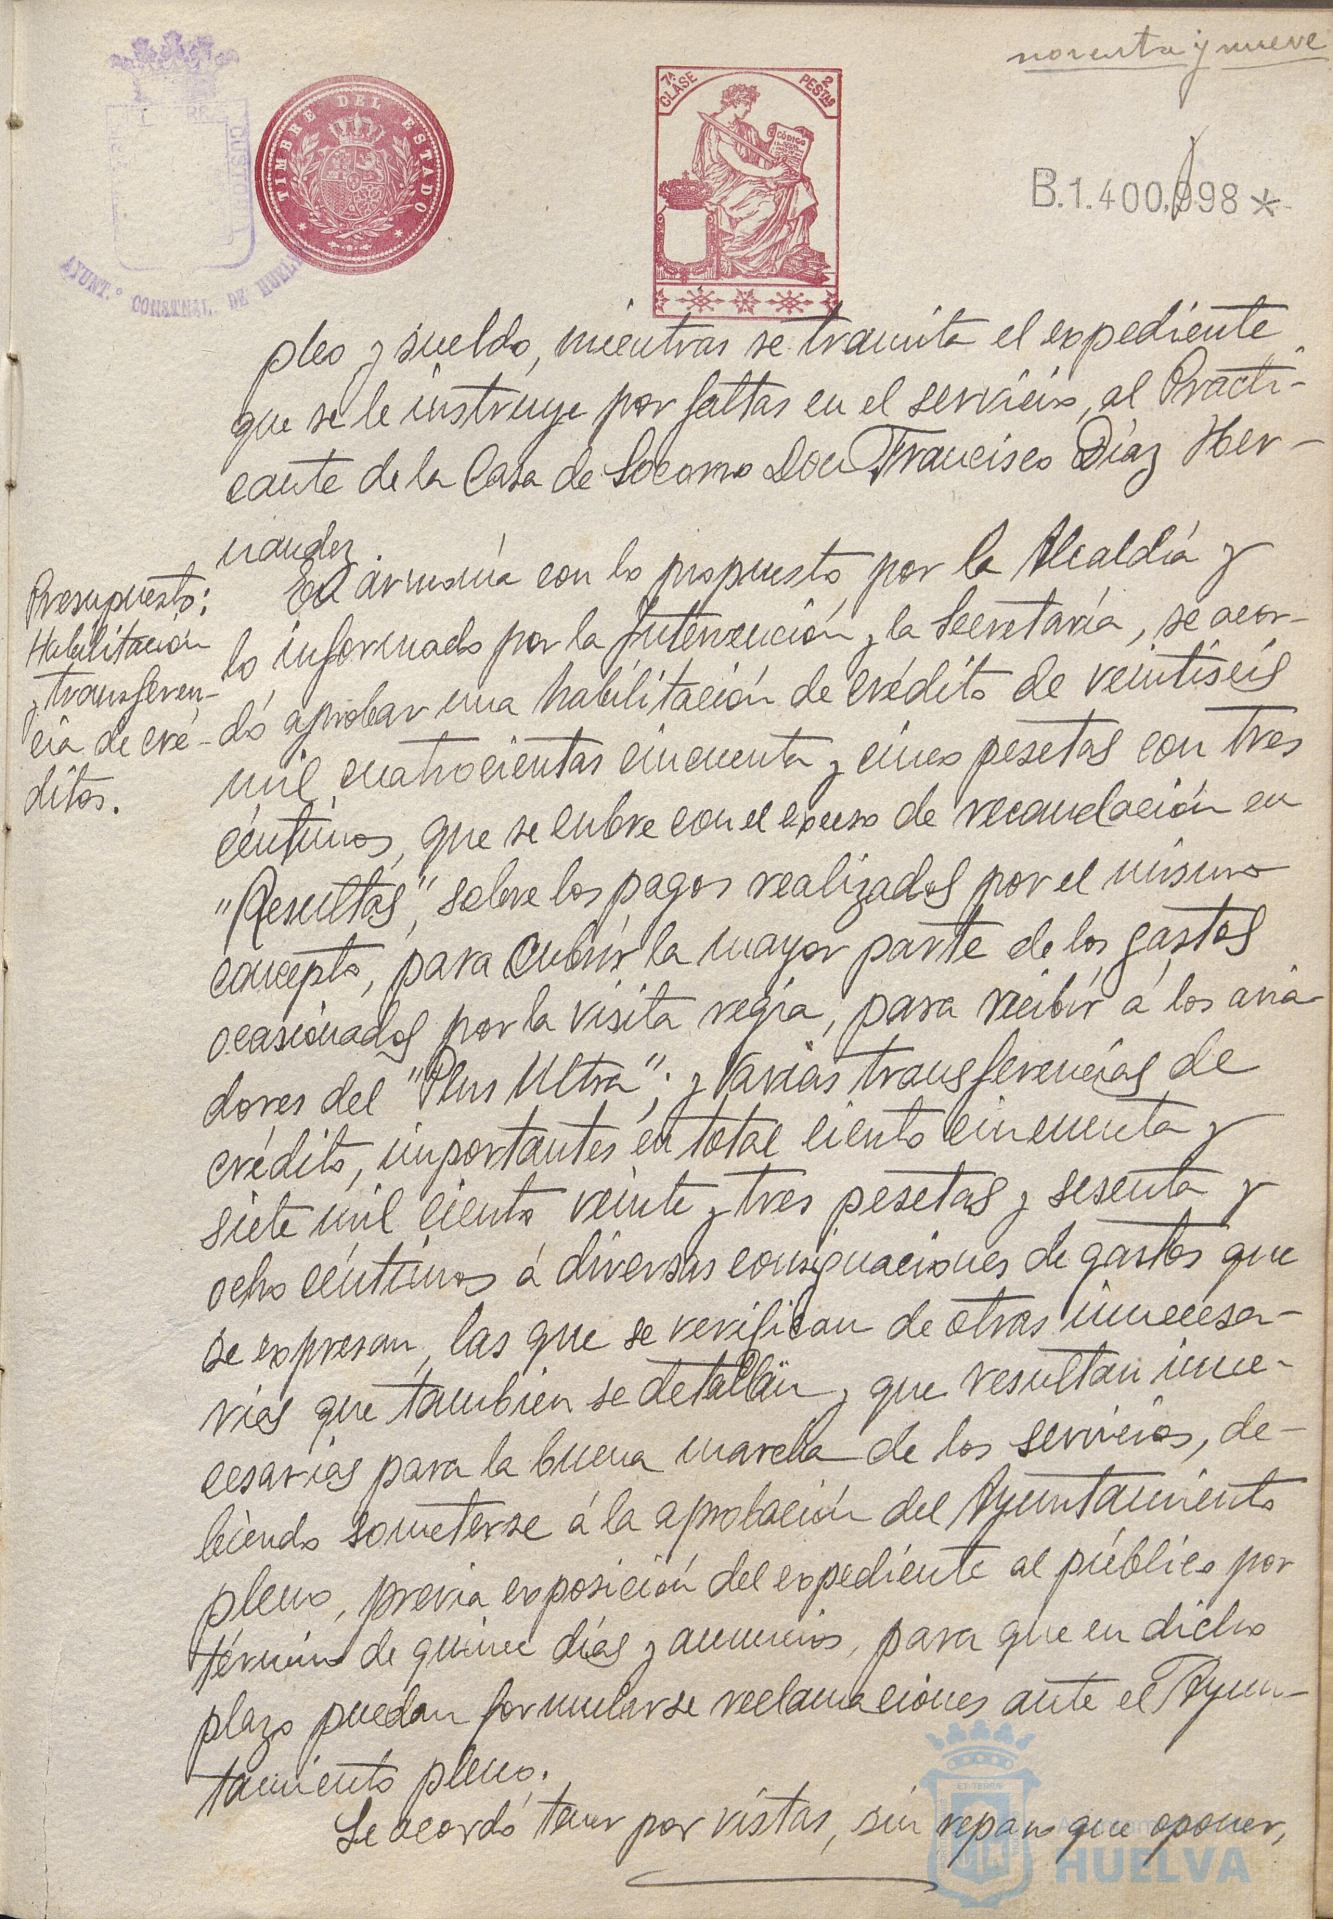 noventa y nueve
TIMBRE DEL ESTADO
7ª CLASE
2 PESTAS
CÓDIGO
B.1.400.998 *
AYUNT.º CONSTNAL. DE HUELVA
pleo y sueldo, mientras se tramita el expediente
que se le instruye por faltas en el servicio, al Practi-
cante de la Casa de Socorro Don Francisco Díaz Her-
nandez.
Presupuesto:
Habilitación
y transferen-
cia de cré-
ditos.
En armonía con lo propuesto por la Alcaldía y
lo informado por la Intervención y la Secretaría, se acor-
dó aprobar una habilitación de crédito de veintiseis
mil cuatrocientas cincuenta y cinco pesetas con tres
céntimos, que se cubre con el exceso de recaudación en
"Resultas", sobre los pagos realizados por el mismo
concepto, para cubrir la mayor parte de los gastos
ocasionados por la visita regia, para recibir á los avia-
dores del "Plus Ultra"; y varias transferencias de
crédito, importantes en total ciento cincuenta y
siete mil ciento veinte y tres pesetas y sesenta y
ocho céntimos á diversas consignaciones de gastos que
se expresan, las que se verifican de otras innecesa-
rias que también se detallan y que resultan inne-
cesarias para la buena marcha de los servicios, de-
biendo someterse á la aprobación del Ayuntamiento
pleno, previa exposición del expediente al público por
término de quince días y anuncios, para que en dicho
plazo puedan formularse reclamaciones ante el Ayun-
tamiento pleno.
Se acordó tener por vistas, sin reparo que oponer,
HUELVA